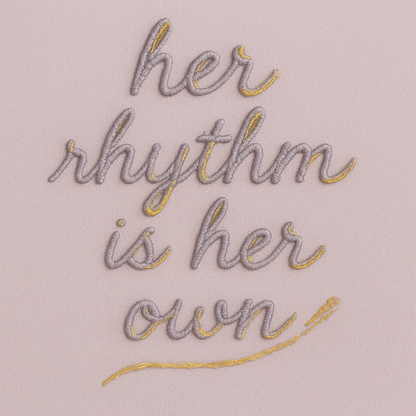 her
rhythm
is her
own